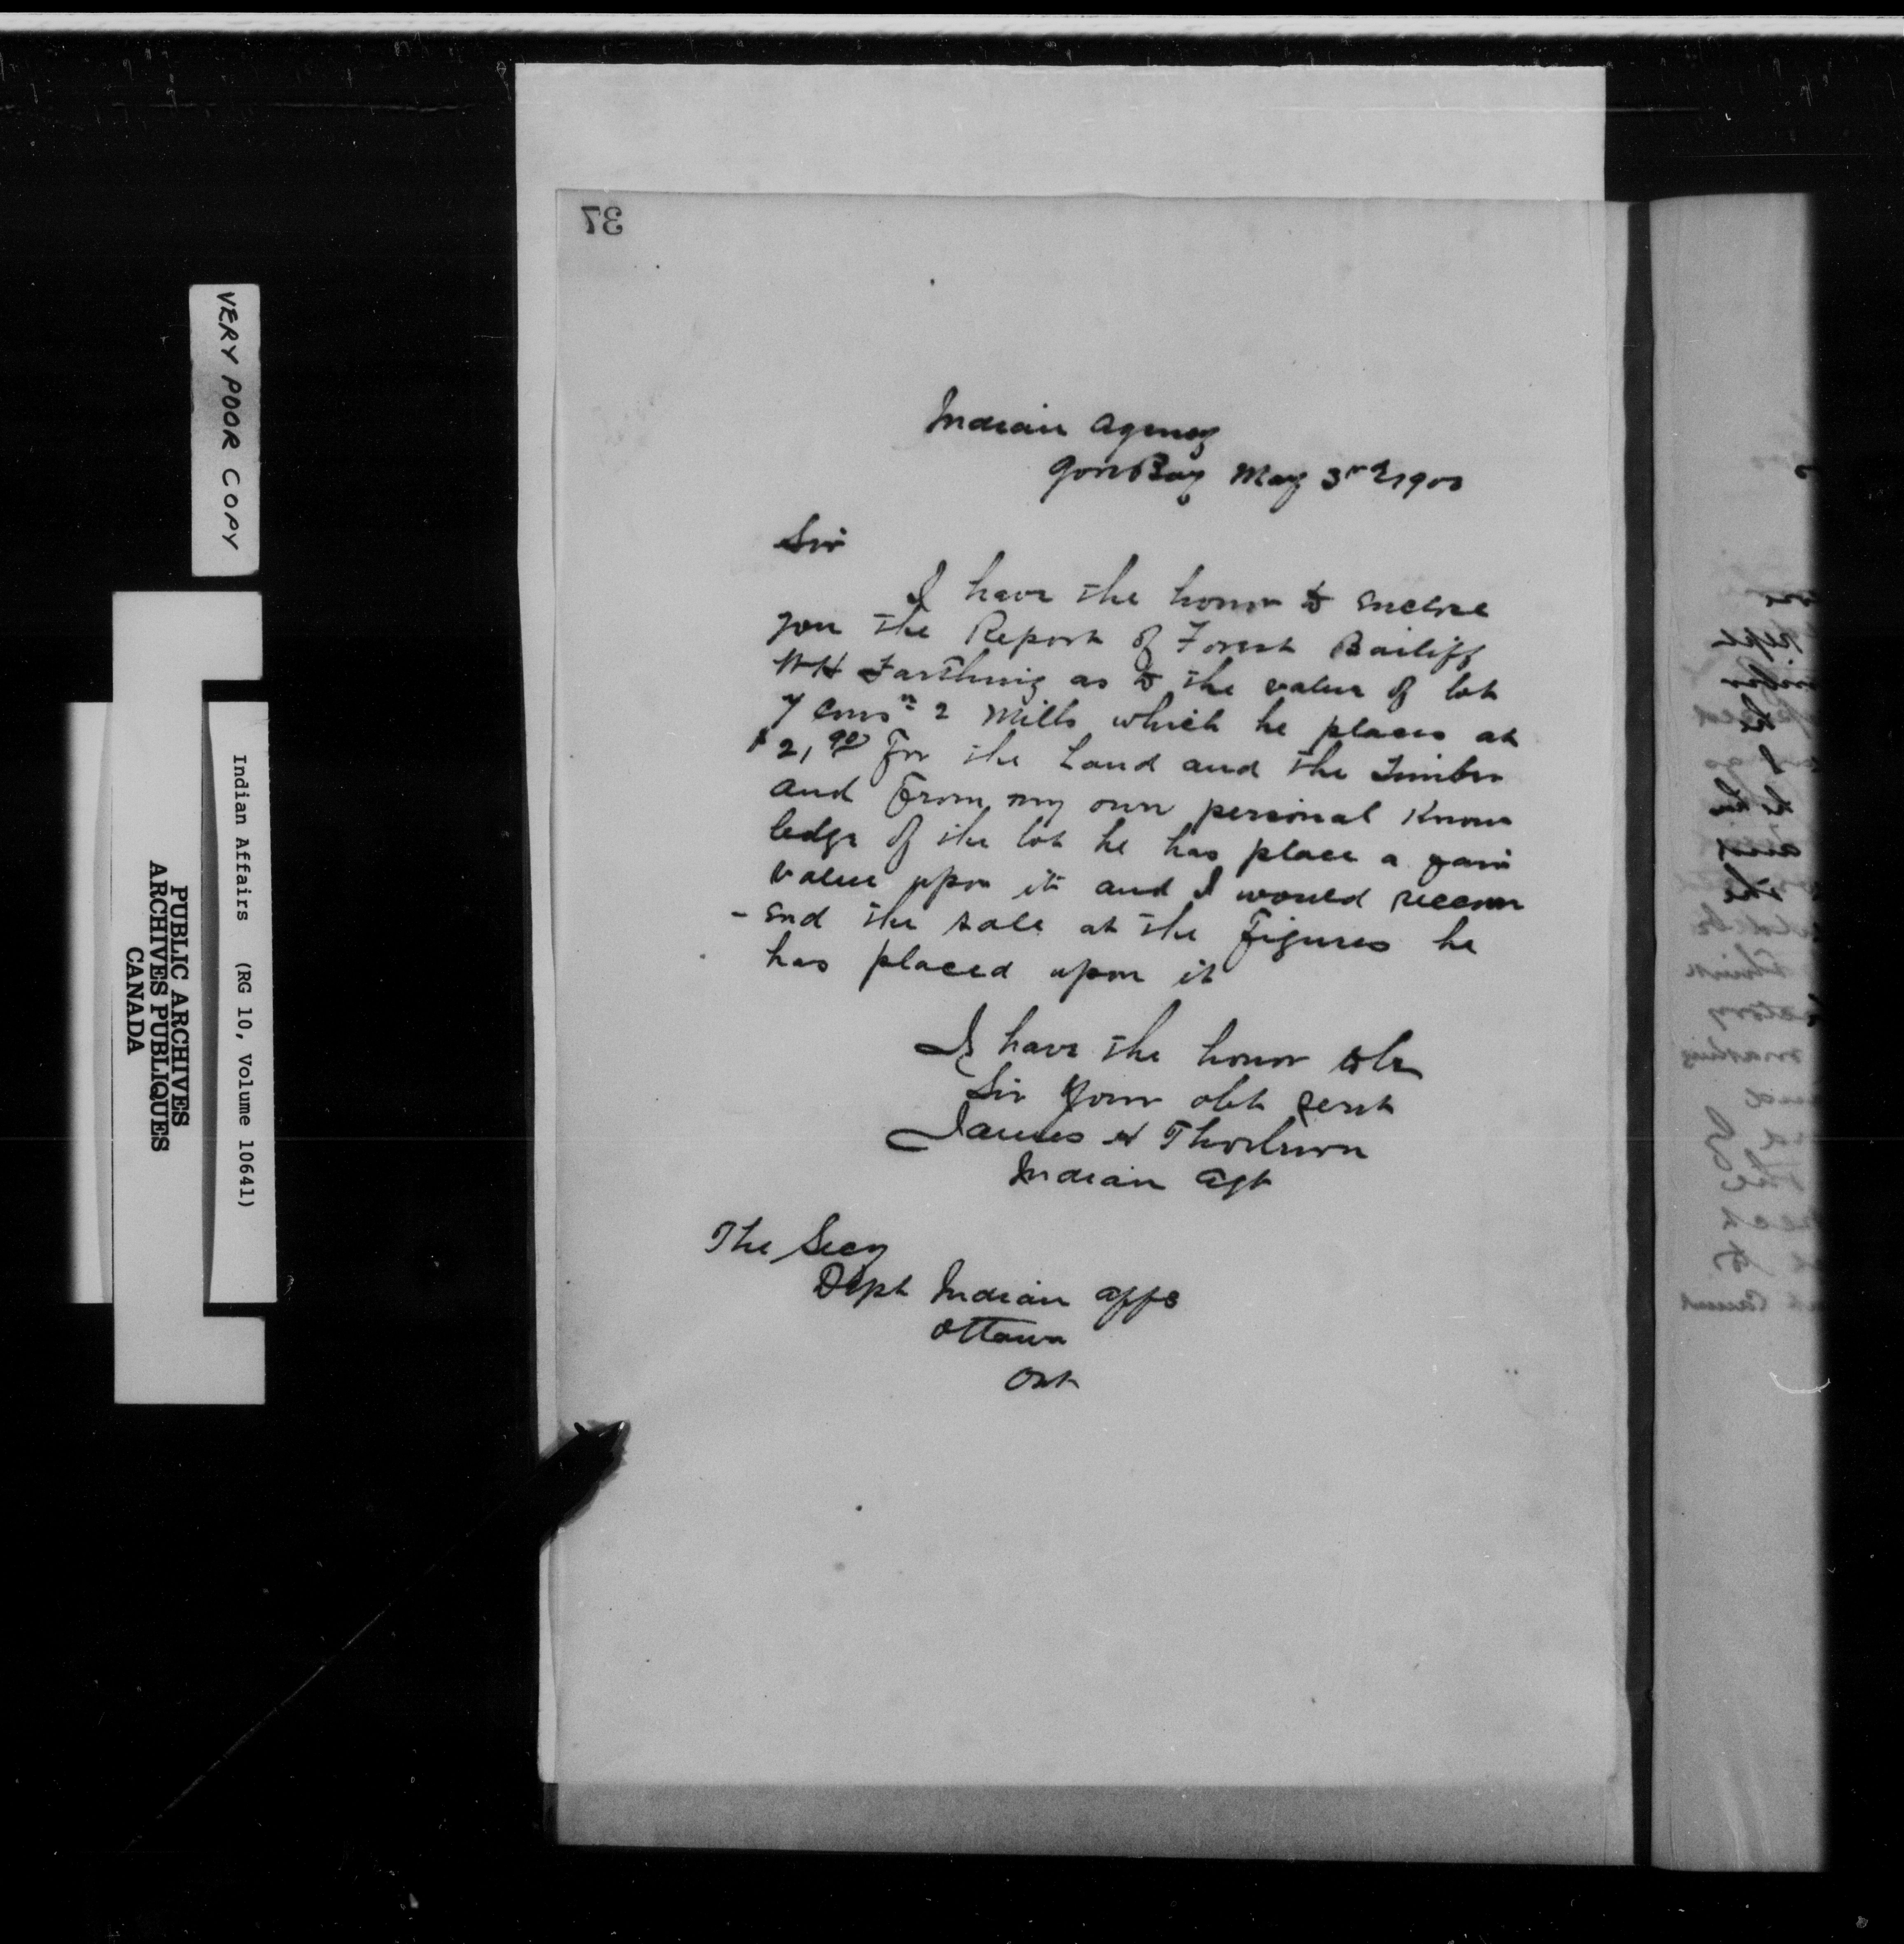 37
Indian Agency
Gore Bay May 3rd 1900
Sir
I have the honor to enclose
you the Report of Forest Bailiff
WH Farthing as to the value of lot
7 Conn 2 Mills which he places at
$2,90 for the Land and the Timber
and From my own personal Know
ledge of the lot he has place a fair
value upon it and I would recom
- end the sale at the Figures he
has placed upon it
I have the honor to be
Sir Your obt servt
James H Thorburn
Indian Agt
The Secy
Dept Indian Affs
Ottawa
Ont
VERY POOR COPY
Indian Affairs (RG 10, Volume 10641)
PUBLIC ARCHIVES
ARCHIVES PUBLIQUES
CANADA